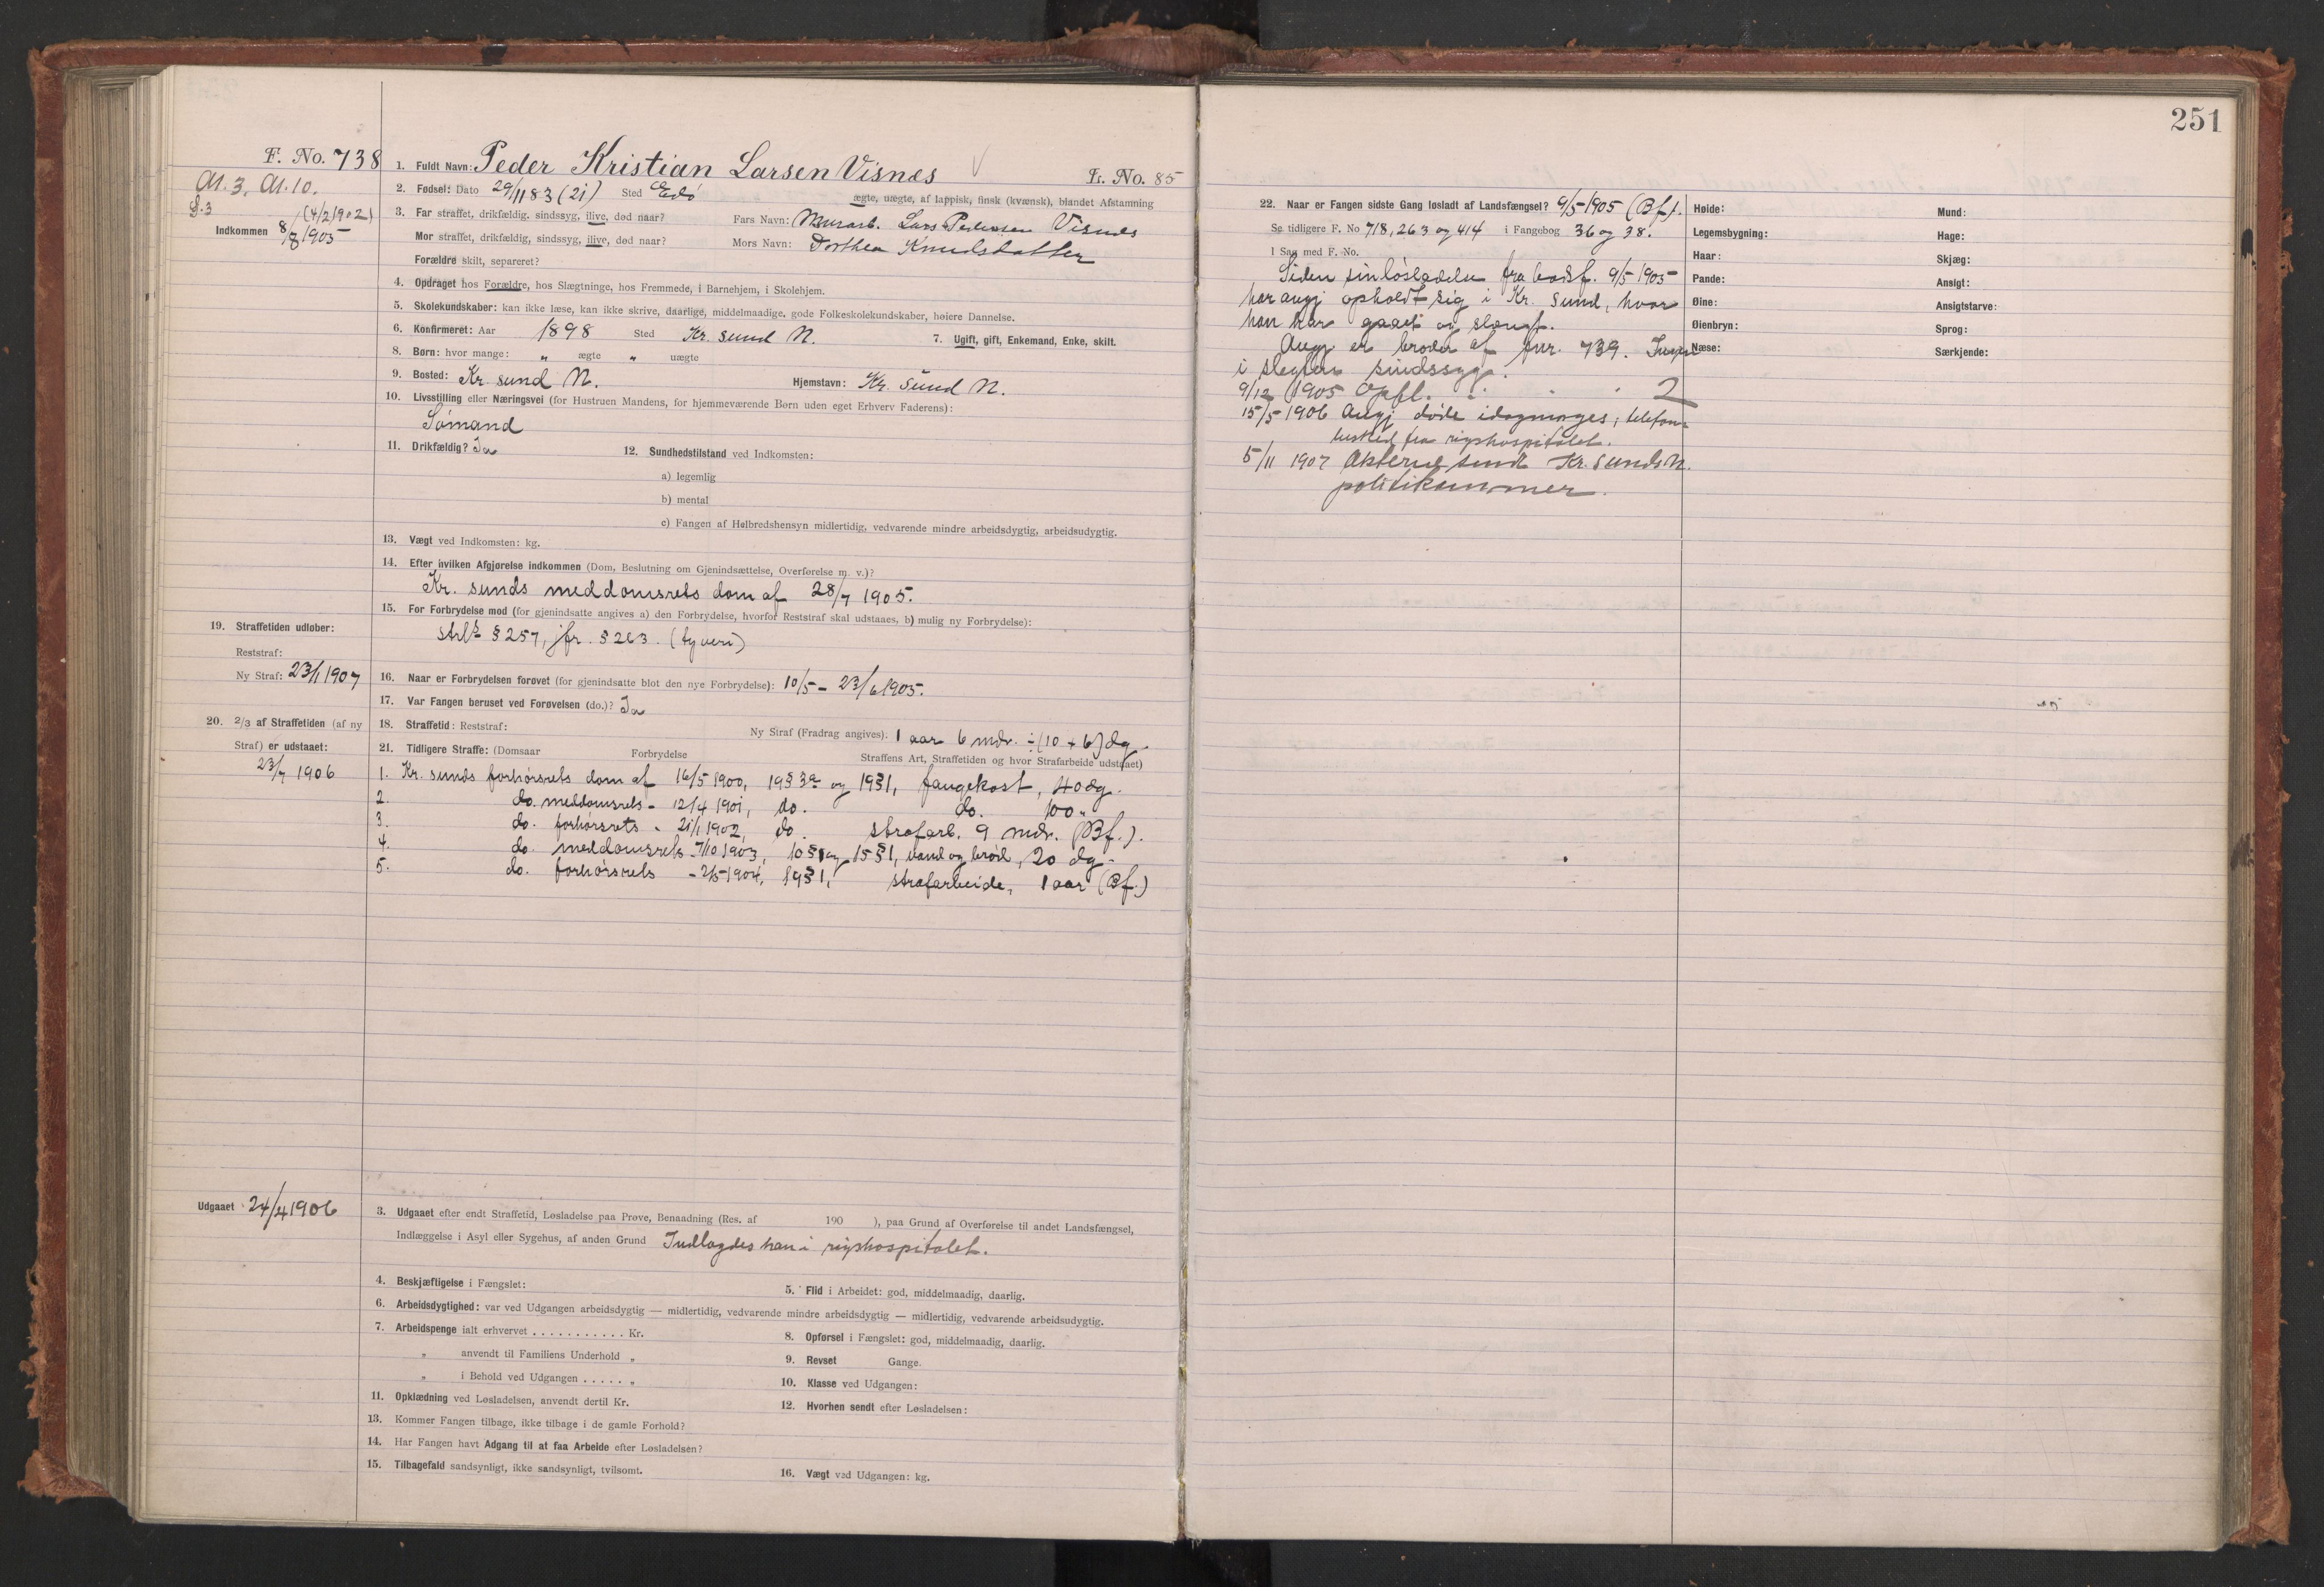 251
F. No. 738
1. Fuldt Navn: Peder Kristian Larsen Visnes
L. No. 85
A1.3. A1.10.
2. Fødsel: Dato 29/11 83 (21) Sted Edø
ægte, uægte, af lappisk, finsk (kvænsk), blandet Afstamning
(4/2 1902)
Indkommen 8/8 1905
3. Far straffet, drikfældig, sindssyg, ilive, død naar? Fars Navn: Murarb. Lars Pedersen Visnes
Mor straffet, drikfældig, sindssyg, ilive, død naar? Mors Navn: Dorthea Knudsdatter
Forældre skilt, separeret?
4. Opdraget hos Forældre, hos Slægtninge, hos Fremmede, i Barnehjem, i Skolehjem.
5. Skolekundskaber: kan ikke læse, kan ikke skrive, daarlige, middelmaadige, gode Folkeskolekundskaber, høiere Dannelse.
6. Konfirmeret: Aar 1898 Sted Kr. sund N. 7. Ugift, gift, Enkemand, Enke, skilt.
8. Børn: hvor mange: „ ægte „ uægte
9. Bosted: Kr. sund N. Hjemstavn: Kr. sund N.
10. Livsstilling eller Næringsvei (for Hustruen Mandens, for hjemmeværende Børn uden eget Erhverv Faderens):
Sømand
11. Drikfældig? Ja 12. Sundhedstilstand ved Indkomsten:
a) legemlig
b) mental
c) Fangen af Helbredshensyn midlertidig, vedvarende mindre arbeidsdygtig, arbeidsudygtig.
13. Vægt ved Indkomsten: kg.
14. Efter hvilken Afgjørelse indkommen (Dom, Beslutning om Gjenindsættelse, Overførelse m. v.)?
Kr. sunds meddomsrets dom af 28/7 1905.
15. For Forbrydelse mod (for gjenindsatte angives a) den Forbrydelse, hvorfor Reststraf skal udstaaes, b) mulig ny Forbrydelse):
strl. § 257, jfr. § 263. (tyveri)
19. Straffetiden udløber:
Reststraf:
Ny Straf: 23/1 1907
16. Naar er Forbrydelsen forøvet (for gjenindsatte blot den nye Forbrydelse): 10/5 – 23/6 1905.
17. Var Fangen beruset ved Forøvelsen (do.)? Ja
20. 2/3 af Straffetiden (af ny
Straf) er udstaaet:
23/7 1906
18. Straffetid: Reststraf: Ny Straf (Fradrag angives): 1 aar 6 mdr. ÷ (10 + 6) dg.
21. Tidligere Straffe: (Domsaar Forbrydelse Straffens Art, Straffetiden og hvor Strafarbeide udstaaet)
1. Kr. sunds forhørsrets dom af 16/5 1900, 19 § 3a og 19 § 1, fangekost, 40 dg.
2. do. meddomsrets - 12/4 1901, do. do. 100 „
3. do. forhørsrets - 21/1 1902, do. strafarb. 9 mdr. (Bf.).
4. do. meddomsrets - 7/10 1903, 10 § 1 og 15 § 1, vand og brød, 20 dg.
5. do. forhørsrets - 2/5 1904, 19 § 1, strafarbeide, 1 aar (Bf.)
Udgaaet 24/4 1906
3. Udgaaet efter endt Straffetid, Løsladelse paa Prøve, Benaadning (Res. af 190 ), paa Grund af Overførelse til andet Landsfængsel,
Indlæggelse i Asyl eller Sygehus, af anden Grund Indlagdes han i rigshospitalet.
4. Beskjæftigelse i Fængslet: 5. Flid i Arbeidet: god, middelmaadig, daarlig.
6. Arbeidsdygtighed: var ved Udgangen arbeidsdygtig — midlertidig, vedvarende mindre arbeidsdygtig — midlertidig, vedvarende arbeidsudygtig.
7. Arbeidspenge ialt erhvervet . . . . . . . . . . . Kr. 8. Opførsel i Fængslet: god, middelmaadig, daarlig.
„ anvendt til Familiens Underhold „ 9. Revset Gange.
„ i Behold ved Udgangen . . . . . „ 10. Klasse ved Udgangen:
11. Opklædning ved Løsladelsen, anvendt dertil Kr. 12. Hvorhen sendt efter Løsladelsen:
13. Kommer Fangen tilbage, ikke tilbage i de gamle Forhold?
14. Har Fangen havt Adgang til at faa Arbeide efter Løsladelsen?
15. Tilbagefald sandsynligt, ikke sandsynligt, tvilsomt. 16. Vægt ved Udgangen: kg.
22. Naar er Fangen sidste Gang løsladt af Landsfængsel? 9/5 1905 (Bf.).
Se tidligere F. No 718, 263 og 414 i Fangebog 36 og 38.
I Sag med F. No.
Siden sin løsladelse fra bodsf. 9/5 1905
har angj opholdt sig i Kr. sund, hvor
han har gaaet og slængt.
Angj er broder af fnr. 739. Ingen
i slegten sindssyg.
9/12 1905 Opfl. 2
15/5 1906 Angj døde idagmorges; telefon-
besked fra rigshospitalet.
5/11 1907 Akterne sendt Kr. sunds N.
politikammer.
Høide: Mund:
Legemsbygning: Hage:
Haar: Skjæg:
Pande: Ansigt:
Øine: Ansigtstarve:
Øienbryn: Sprog:
Næse: Særkjende: